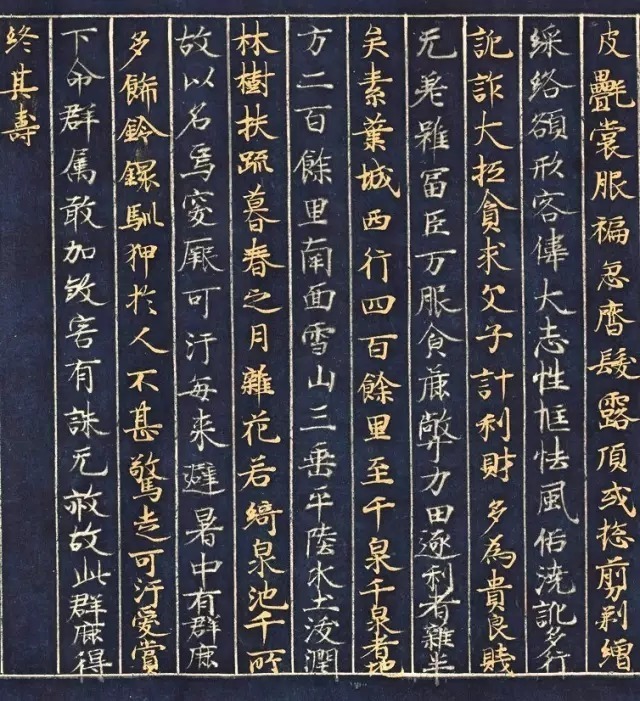 皮氎裳服褊急齊髮露頂或揔剪剃繒
綵絡額形容偉大志性恇怯風俗澆訛多行
詭詐大抵貪求父子計利財多為貴良賤
无差雖富臣万服食麁弊力田逐利者雜半
矣素葉城西行四百餘里至千泉千泉者地
方二百餘里南面雪山三垂平陸水土潤
林樹扶疏暮春之月雜花若綺泉池千所
故以名焉突厥可汗每来避暑中有群鹿
多飾鈴鐶馴狎於人不甚驚走可汗愛賞
下命群属敢加害有誅无赦故此群鹿得
終其壽